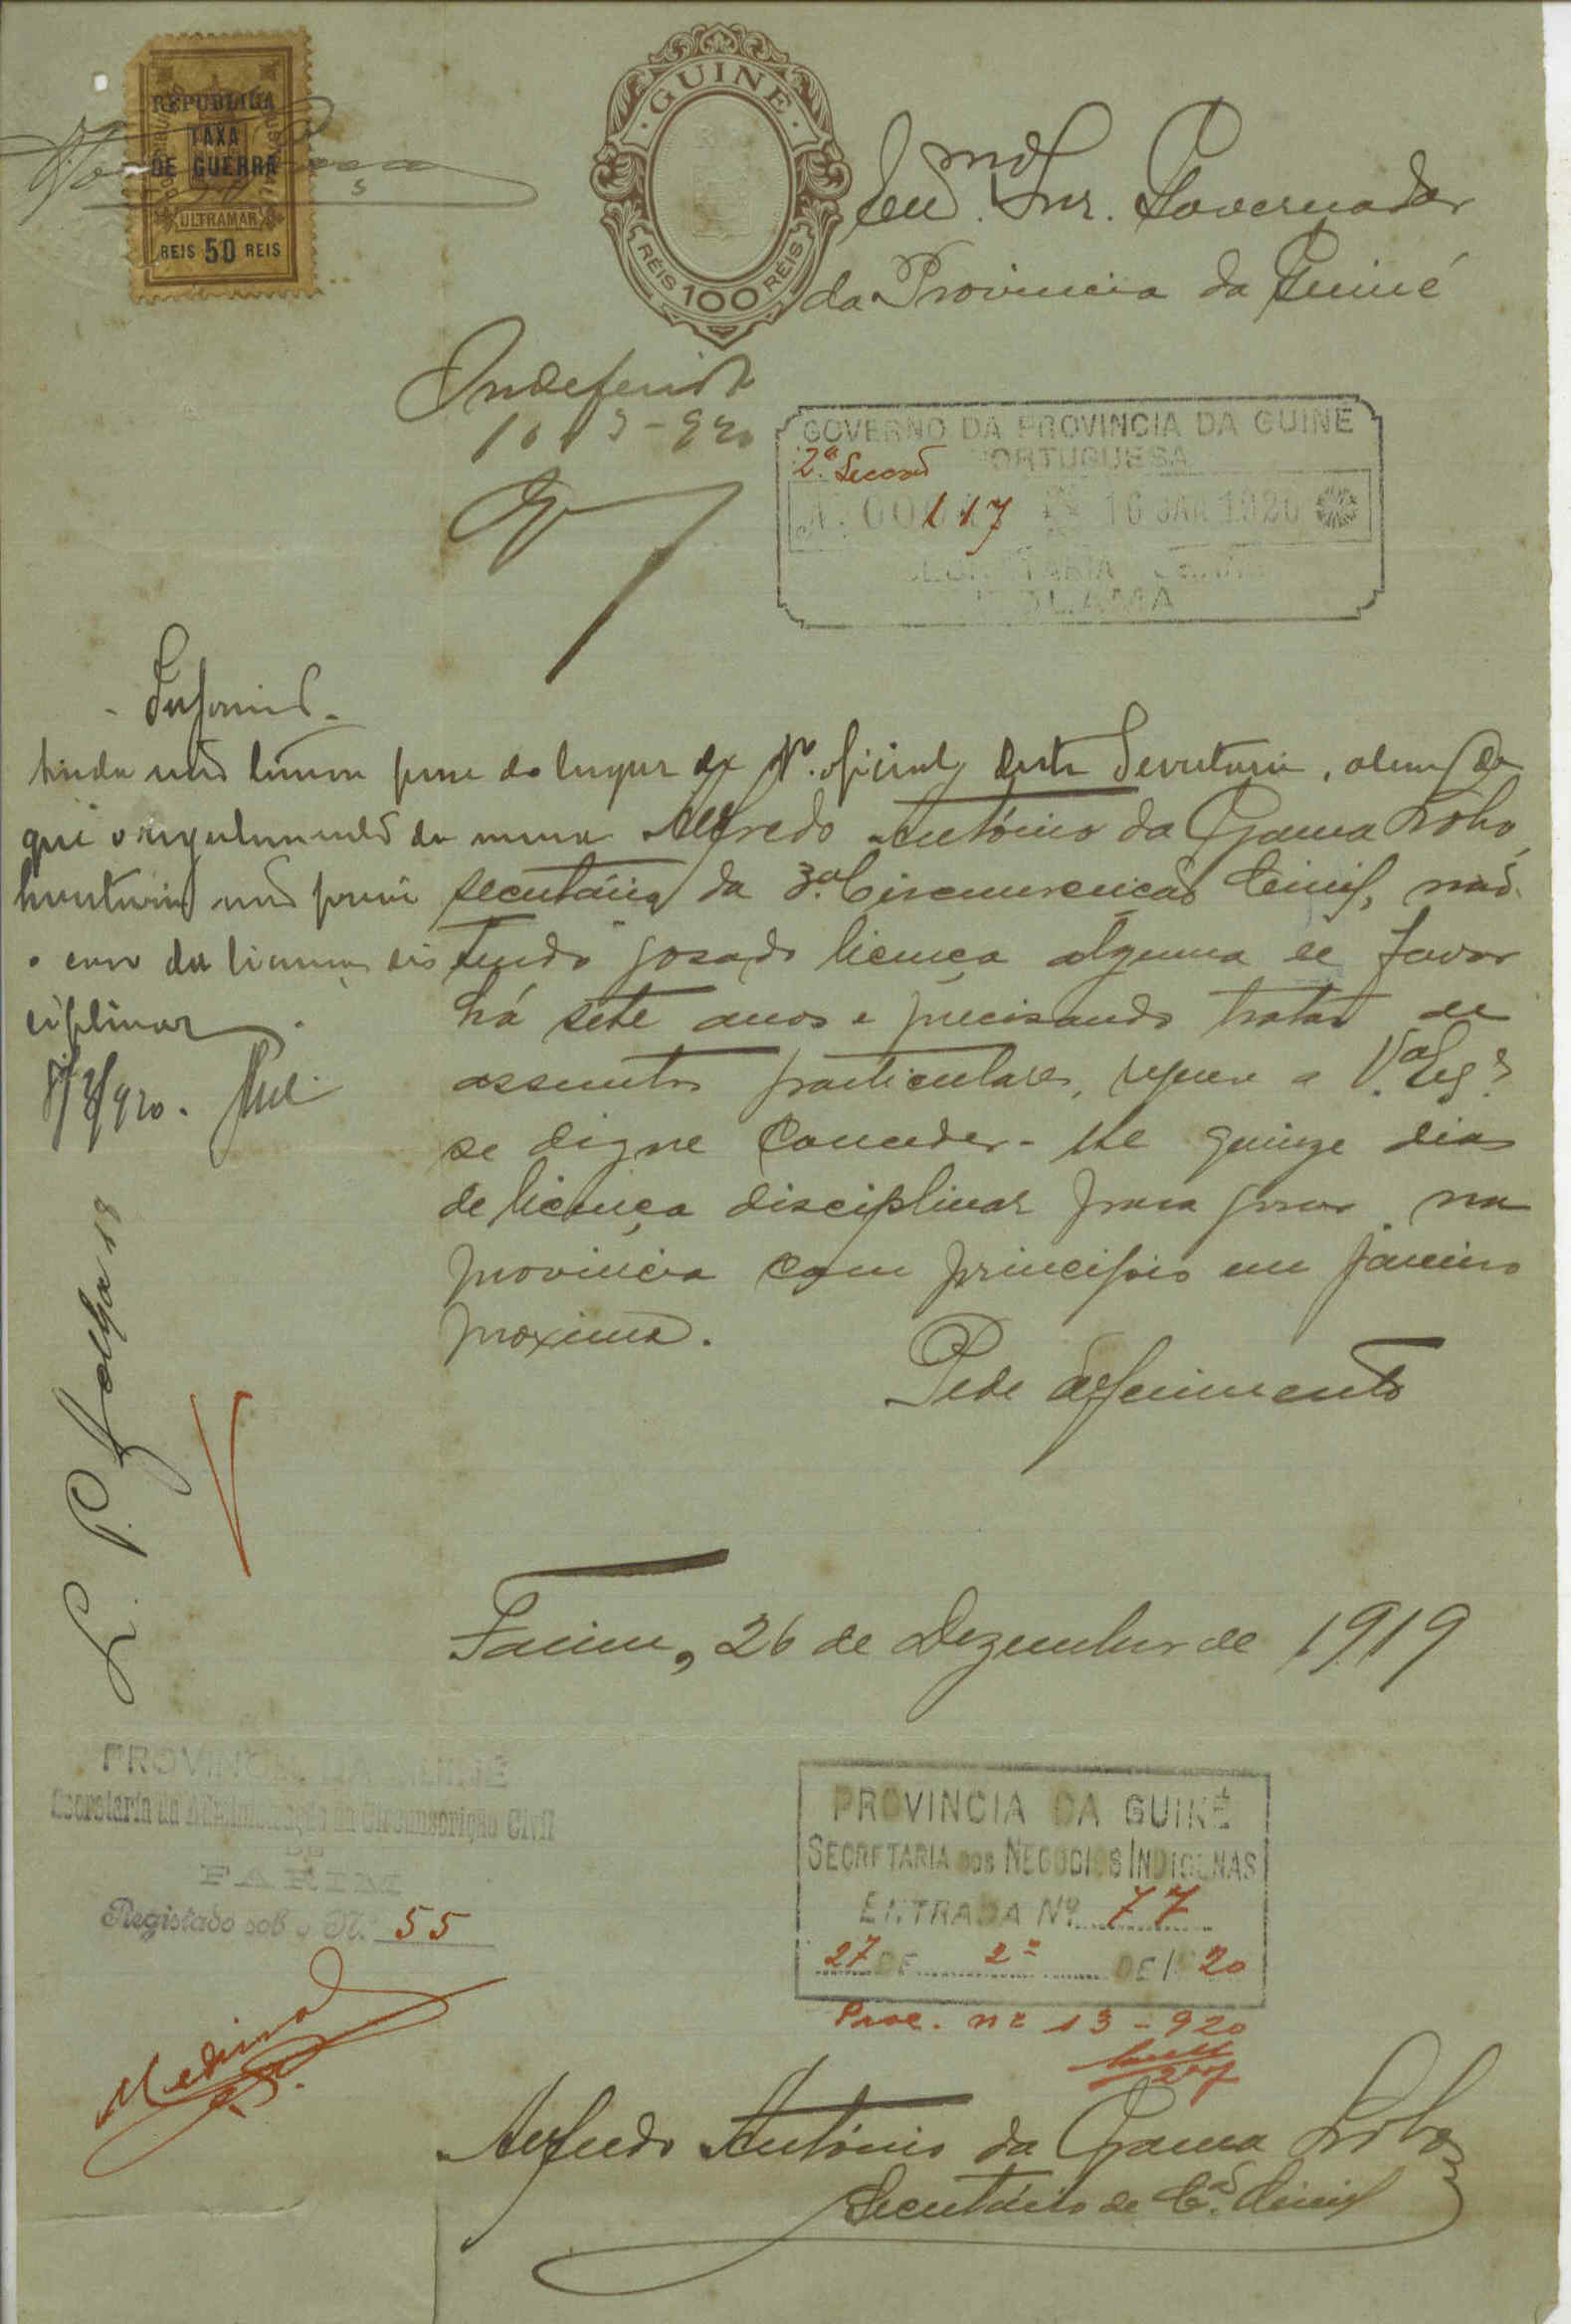 REPUBLICA
TAXA
DE GUERRA
ULTRAMAR
REIS 50 REIS
GUINÉ
RÉIS 100 RÉIS
Snr. Governador
da Provincia da Guiné
Indeferido
10-3-920
GOVERNO DA PROVINCIA DA GUINÉ
PORTUGUESA
2.ª Secção
117 16 JAN 1920
SECRETARIA
BOLAMA
- Informo -
tendo não tomou posse do lugar de 1º. oficial desta Secretaria, alem de
que o regulamento da mesma
secretaria não prevê
o caso da licença dis
ciplinar.
8/3/920.
Alfredo António da Gama Lobo,
secretário da 3.ª Circunscrição Civil, não
tendo gosado licença alguma de favor
há sete anos e precisando tratar de
assuntos particulares, requer a V.ª Exª
se digne conceder-lhe quinze dias
de licença disciplinar para gosar na
provincia com principio em janeiro
proximo.
Pede deferimento
L. P. folha 18
Farim, 26 de Dezembro de 1919
PROVINCIA DA GUINÉ
Secretaria da Administração da Circunscrição Civil
DE
FARIM
Registado sob o N.º 55
Medina
PROVINCIA DA GUINÉ
SECRETARIA DOS NEGOCIOS INDIGENAS
ENTRADA Nº 77
27 DE 2º DE 1920
Proc. nº 13-920
Alfredo António da Gama Lobo
Secretário de C.ão Civil